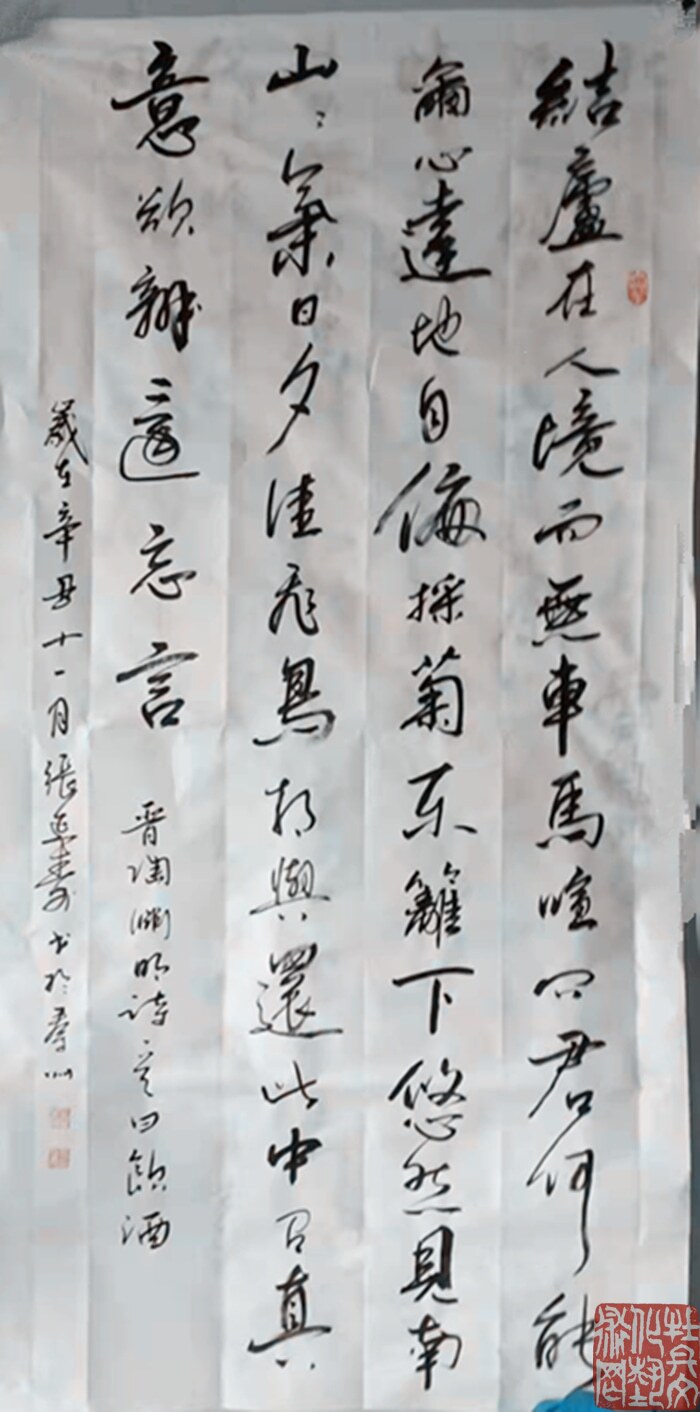 結廬在人境而無車馬喧问君何能
爾心遠地自偏採菊东籬下悠然見南
山〻氣日夕佳飛鳥相與還此中有真
意欲辨忘言
晋陶渊明詩曰飲酒
歲在辛丑十一月張书於